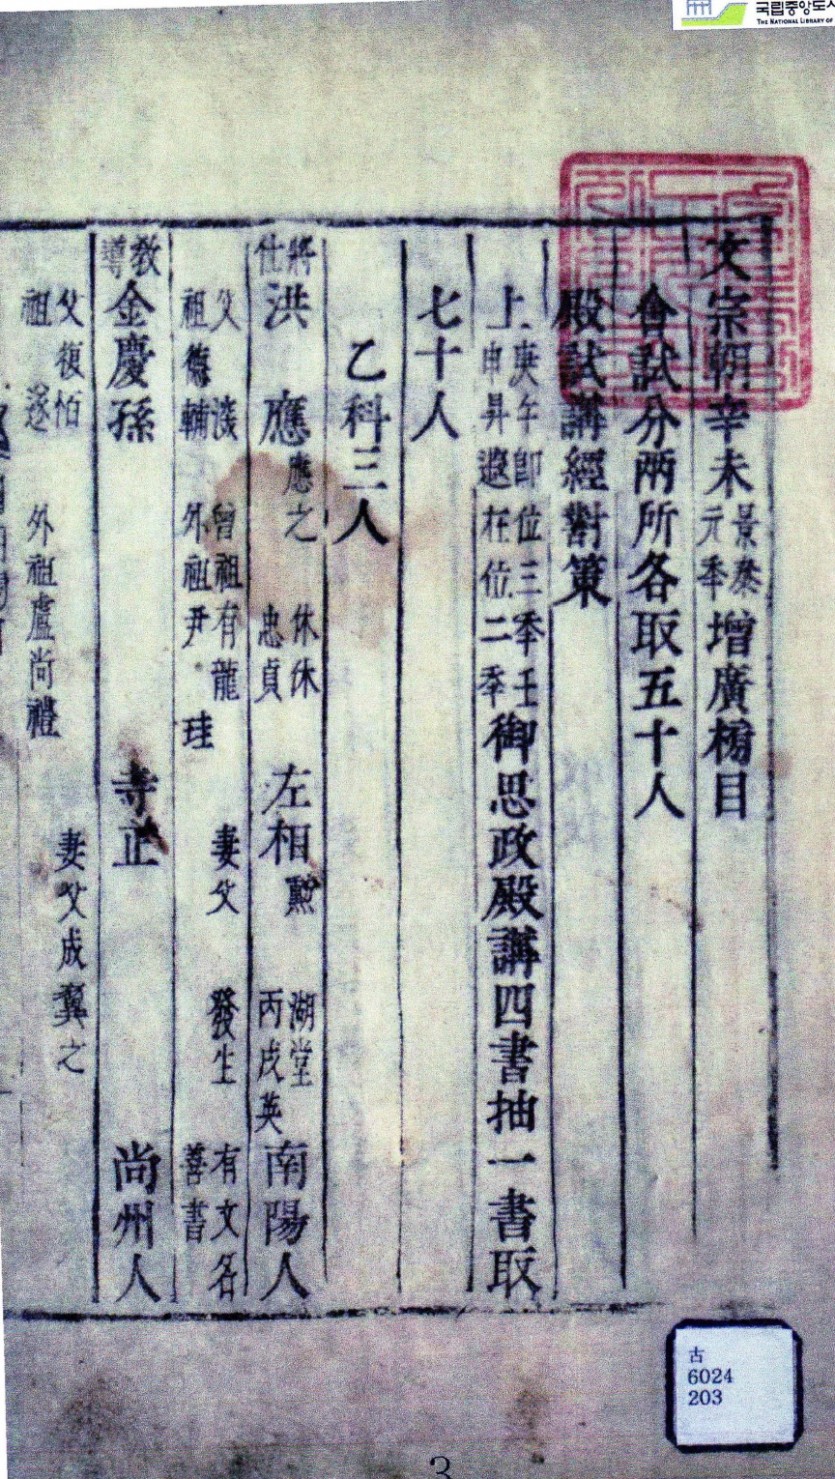 국립중앙도서
THE NATIONAL LIBRARY OF
文宗朝辛未景泰元季增廣榜目
會試分兩所各取五十人
殿試講經對策
上庚午卽位三季壬申昇遐在位二季御思政殿講四書抽一書取
七十人
乙科三人
將仕洪應應之休休忠貞左相勲湖堂丙戌英南陽人
父濙曾祖有龍妻父發生有文名
祖德輔外祖尹珪善書
敎導金慶孫寺正尚州人
父復怕妻父成翼之
祖遂外祖盧尚禮
古
6024
203
3